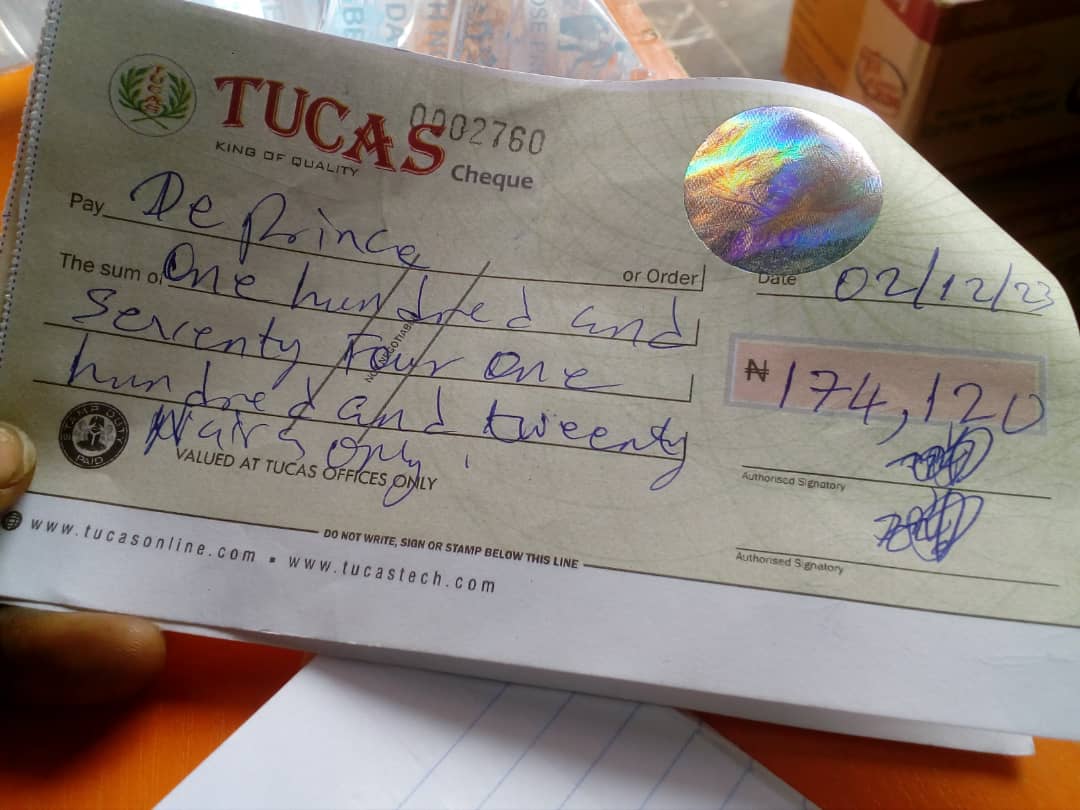 TUCAS
0002760
KING OF QUALITY
Cheque
Pay De Prince
or Order
Date 02/12/23
The sum of One hundred and
Seventy Four One
hundred and tweenty
Naira Only
₦ 174,120
STAMP DUTY
PAID
VALUED AT TUCAS OFFICES ONLY
Authorised Signatory
Authorised Signatory
DO NOT WRITE, SIGN OR STAMP BELOW THIS LINE
www.tucasonline.com ▪ www.tucastech.com